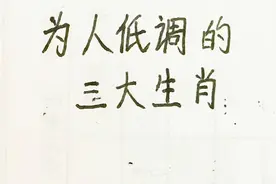 为人低调的
三大生肖